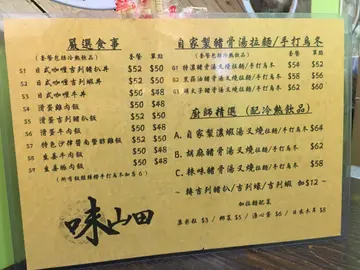 嚴選食事
(套餐包括冷熱飲品) 套餐 單點
S1 日式咖喱吉列豬扒丼 $52 $50
S2 日式咖喱吉列蝦丼 $52 $50
S3 日式咖喱吉列蠔丼 $52 $50
S4 滑蛋雞肉飯 $50 $48
S5 滑蛋吉列豬扒飯 $50 $48
S6 滑蛋牛肉飯 $50 $48
S7 特色沙律醬南蠻炸雞飯 $52 $50
S8 生姜牛肉飯 $50 $48
S9 生姜豚肉飯 $50 $48
味山田
自家製豬骨湯拉麵/手打烏冬
(套餐包括冷熱飲品) 套餐 單點
G1 特濃豬骨湯叉燒拉麵/手打烏冬 $54 $52
G2 黑蒜油豬骨湯叉燒拉麵/手打烏冬 $56 $54
G3 明太子豬骨湯叉燒拉麵/手打烏冬 $60 $58
廚師精選 (配冷熱飲品)
A. 自家製濃蝦湯叉燒拉麵/手打烏冬 $64
B. 胡麻豬骨湯叉燒拉麵/手打烏冬 $62
C. 辣味豬骨湯叉燒拉麵/手打烏冬 $58
~ 轉吉列豬扒/吉列蠔/吉列蝦 加$12 ~
加拉麵配菜
粟米粒 $3 / 椰菜 $5 / 溏心蛋 $6 / 日本木耳 $8